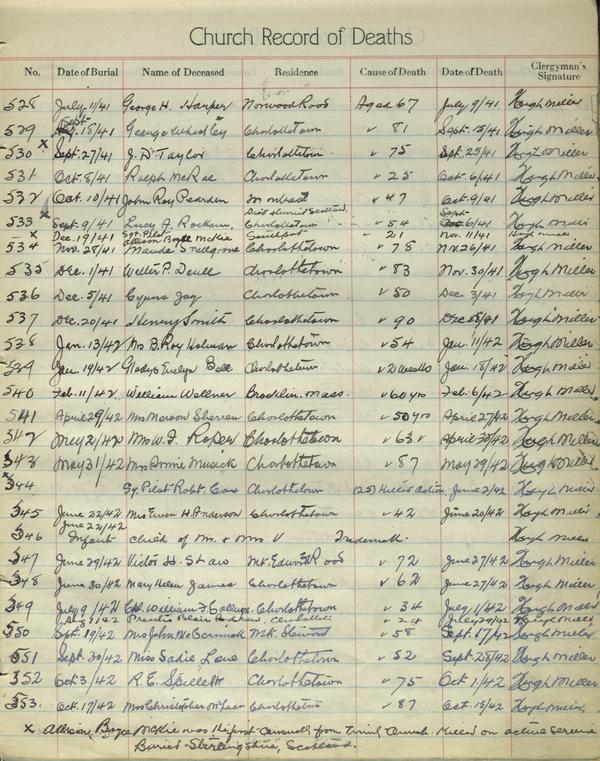 Church Record of Deaths
No. Date of Burial Name of Deceased Residence Cause of Death Date of Death Clergyman's Signature
528 July 11/41 George H. Harper Norwood Road Aged 67 July 9/41 Hugh Miller
529 Sept. 18/41 George Charlottetown v 81 Sept. 15/41 Hugh Miller
530 x Sept. 27/41 J. D. Taylor Charlottetown v 75 Sept. 25/41 Hugh Miller
531 Oct. 8/41 Ralph McRae Charlottetown v 25 Oct. 6/41 Hugh Miller
532 Oct. 10/41 John Roy v 47 Oct. 9/41 Hugh Miller
533 x Sept. 9/41 Lucy A. Charlottetown v 54 Sept. 6/41 Hugh Miller
x Dec. 19/41 Sgt. Pilot Allison Boyce McKie v 21 Nov. 11/41 Hugh Miller
534 Nov. 28/41 Charlottetown v 78 Nov. 26/41 Hugh Miller
535 Dec. 1/41 Charlottetown v 83 Nov. 30/41 Hugh Miller
536 Dec. 5/41 Cyrus Jay Charlottetown v 50 Dec. 3/41 Hugh Miller
537 Dec. 20/41 Henry Smith Charlottetown v 90 Hugh Miller
538 Jan. 13/42 Mrs B. Roy Holman Charlottetown v 54 Jan. 11/42 Hugh Miller
539 Jan. 19/42 Gladys Evelyn Bell Charlottetown v weeks Jan. 18/42 Hugh Miller
540 Feb. 11/42 William Wellner Mass. v 60 yrs Feb. 6/42 Hugh Miller
541 April 29/42 Mrs Charlottetown v 50 yrs April 27/42 Hugh Miller
542 May 2/42 Mrs W. F. Roper Charlottetown v 63 v April 30/42 Hugh Miller
543 May 31/42 Mrs Annie Musick Charlottetown v 87 May 29/42 Hugh Miller
x 544 Sgt. Pilot Robt. Cox Charlottetown (25) Killed Action June 2/42 Hugh Miller
545 June 22/42 Mrs Ewen H. Anderson Charlottetown v 42 June 20/42 Hugh Miller
546 June 22/42 Infant child of Mr. & Mrs V Hugh Miller
547 June 29/42 Victor H. Shaw Mt. Edward Road v 72 June 27/42 Hugh Miller
548 June 30/42 Mary Helen James Charlottetown v 62 June 27/42 Hugh Miller
549 July 9/42 William F. Charlottetown v 34 July 7/42 Hugh Miller
v 24 July 29/42 Hugh Miller
550 Sept. 19/42 Mrs John McCormack Mt. Stewart v 58 Sept. 17/42 Hugh Miller
551 Sept. 30/42 Miss Sadie Lane Charlottetown v 52 Sept. 28/42 Hugh Miller
552 Oct. 3/42 R. E. Spillett Charlottetown v 75 Oct. 1/42 Hugh Miller
553. Oct. 17/42 Mrs Christopher McLean Charlottetown v 87 Oct. 15/42 Hugh Miller
x Allison Boyce McKie was the first casualty from Trinity Church. Killed on active service
Buried - Stirlingshire, Scotland.